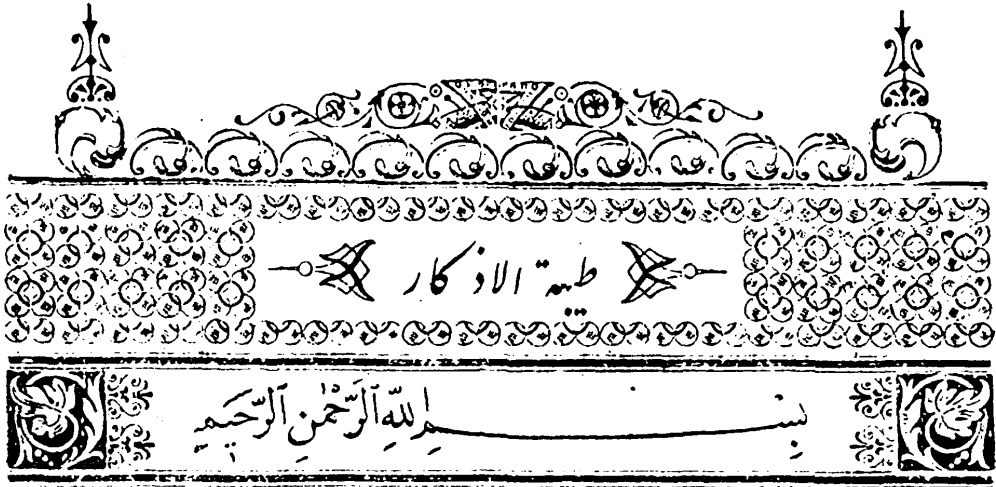 طيبة الاذكار
بِسْمِ اللّٰهِ الرَّحْمٰنِ الرَّحِيمِ